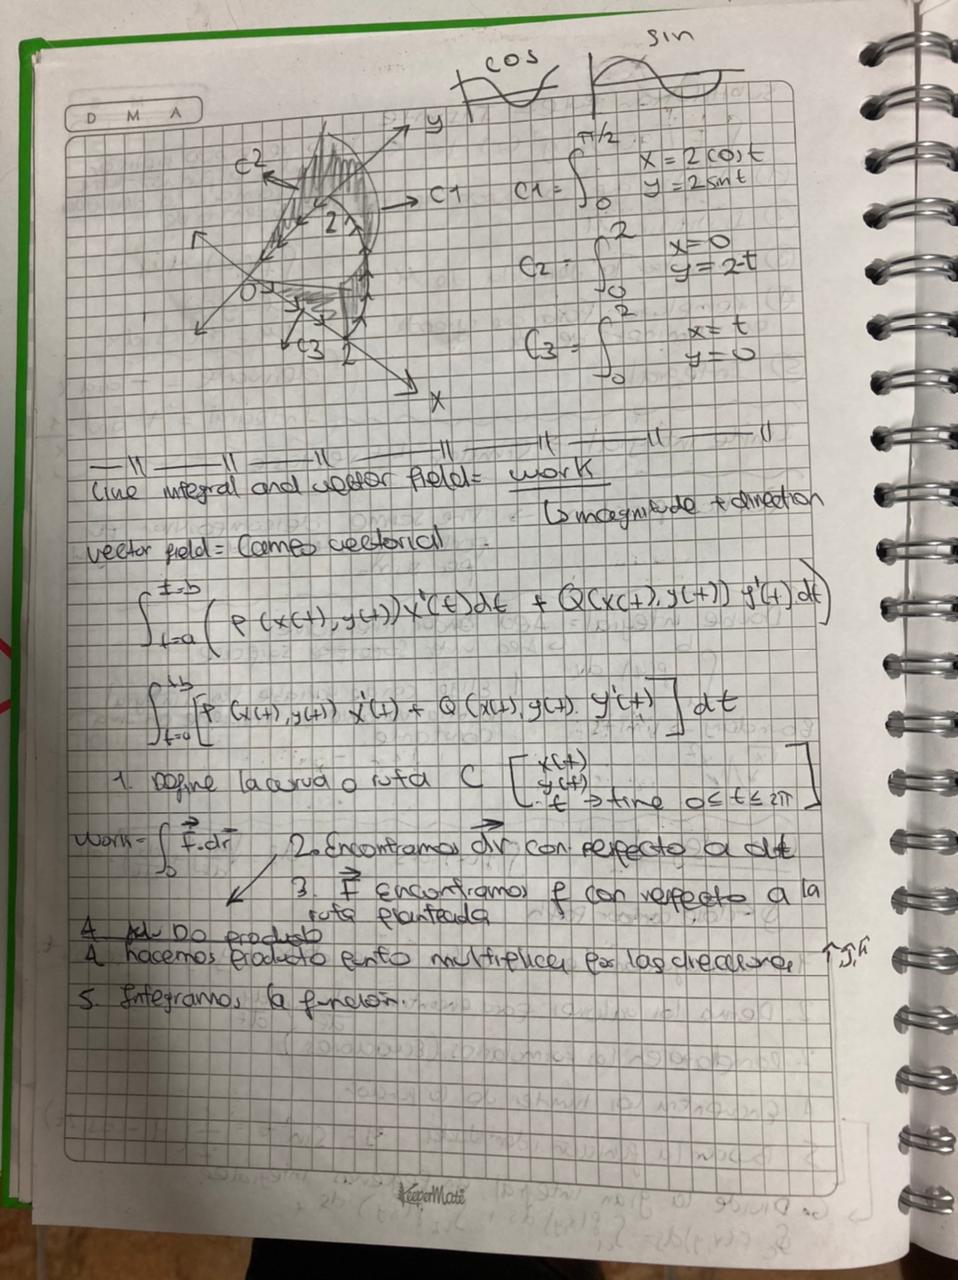 cos
sin
D M A
y
C2
C1
2
0
C3
2
x
C1 = ∫ 0 π/2 x = 2 cos t
y = 2 sin t
C2 = ∫ 0 2 x = 0
y = 2-t
C3 = ∫ 0 2 x = t
y = 0
Line integral and vector field = work
↳ magnitude + direction
vector field = Campo vectorial
∫ t=a t=b (P(x(t), y(t)) x'(t) dt + Q(x(t), y(t)) y'(t) dt)
∫ t=a t=b [P(x(t), y(t)) x'(t) + Q(x(t), y(t). y'(t)] dt
1. Define la curva o ruta C [x(t)
y(t)
t → time 0 ≤ t ≤ 2π]
Work = ∫ F · dr 2. Encontramos dr con respecto a dt
3. F Encontramos f con respecto a la
ruta planteada
4 Do producto
4 hacemos producto punto multiplica por las direcciones î ĵ k̂
5. Integramos la función.
KeeperMate